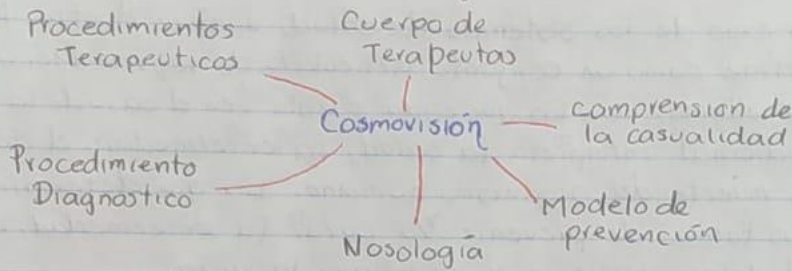 Procedimientos
Terapeuticos
Cuerpo de
Terapeutas
Cosmovisión
comprension de
la casualidad
Procedimiento
Diagnostico
Modelo de
prevención
Nosología